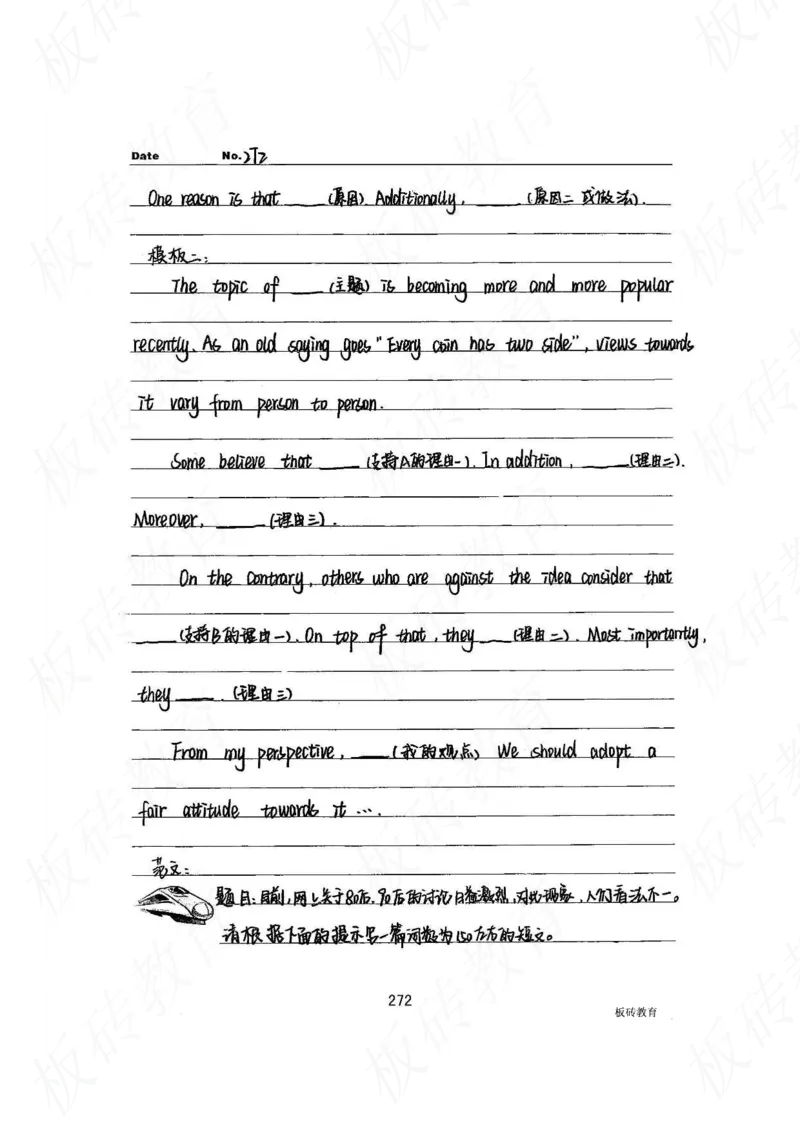 Date No. 272
One reason is that ____ (原因). Additionally, ____ (原因二 或做法).
模板二:
The topic of ____ (主题) is becoming more and more popular
recently. As an old saying goes "Every coin has two side", views towards
it vary from person to person.
Some believe that ____ (支持A的理由一). In addition, ____ (理由二).
Moreover, ____ (理由三).
On the contrary, others who are against the idea consider that
____ (支持B的理由一). On top of that, they ____ (理由二). Most importantly,
they ____. (理由三)
From my perspective, ____ (我的观点) We should adopt a
fair attitude towards it ….
范文:
题目:目前,网上关于80后、90后的讨论日益激烈,对此现象,人们看法不一。
请根据下面的提示写一篇词数为150左右的短文。
272
板砖教育